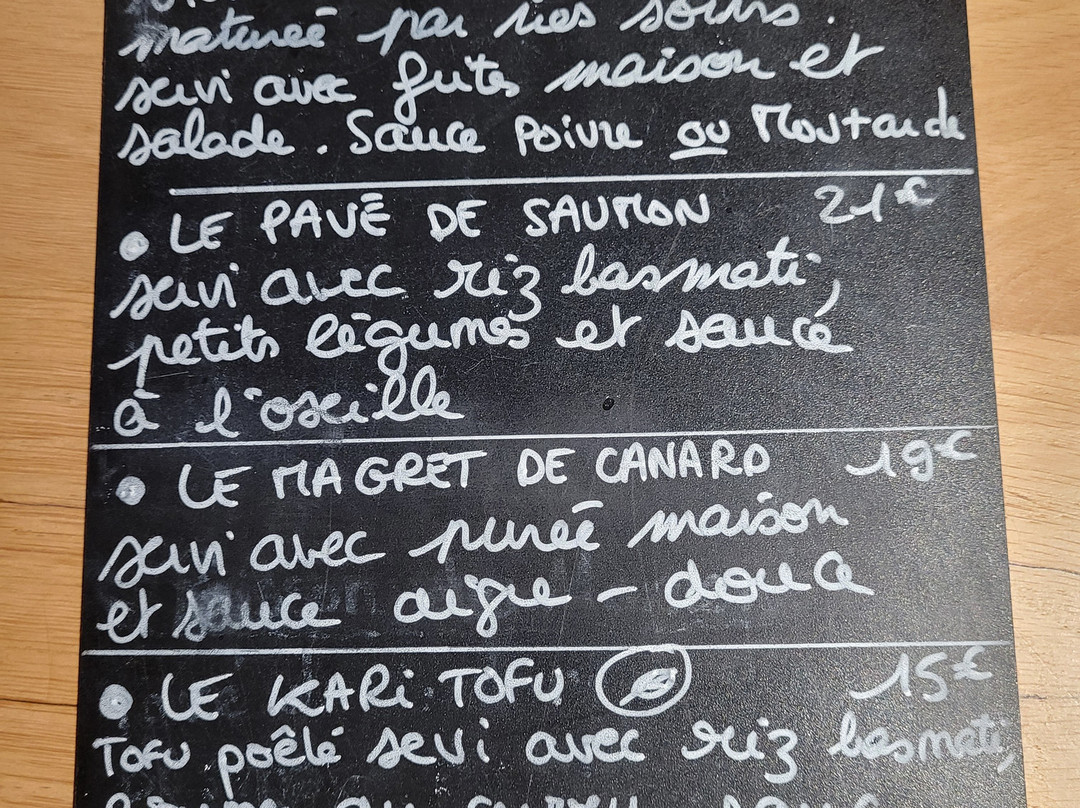 maturée par nes soins.
servi avec frites maison et
salade. Sauce Poivre ou Moutarde
• LE PAVÉ DE SAUMON 21€
servi avec riz basmati,
petits légumes et sauce
à l'oseille
• LE MAGRET DE CANARD 19€
servi avec purée maison
et sauce aigre-douce
• LE KARI TOFU 15€
TOFU poêlé servi avec riz basmati,